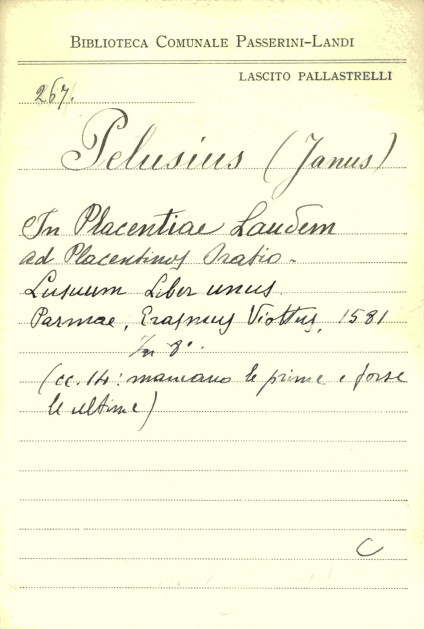 BIBLIOTECA COMUNALE PASSERINI-LANDI
LASCITO PALLASTRELLI
267.
Pelusius (Janus)
In Placentiae Laudem
ad Placentinos Oratio -
Lusuum Liber unus.
Parmae, Erasmus Viottus, 1581
In 8°.
(cc. 14: mancano le prime e forse
le ultime)
C